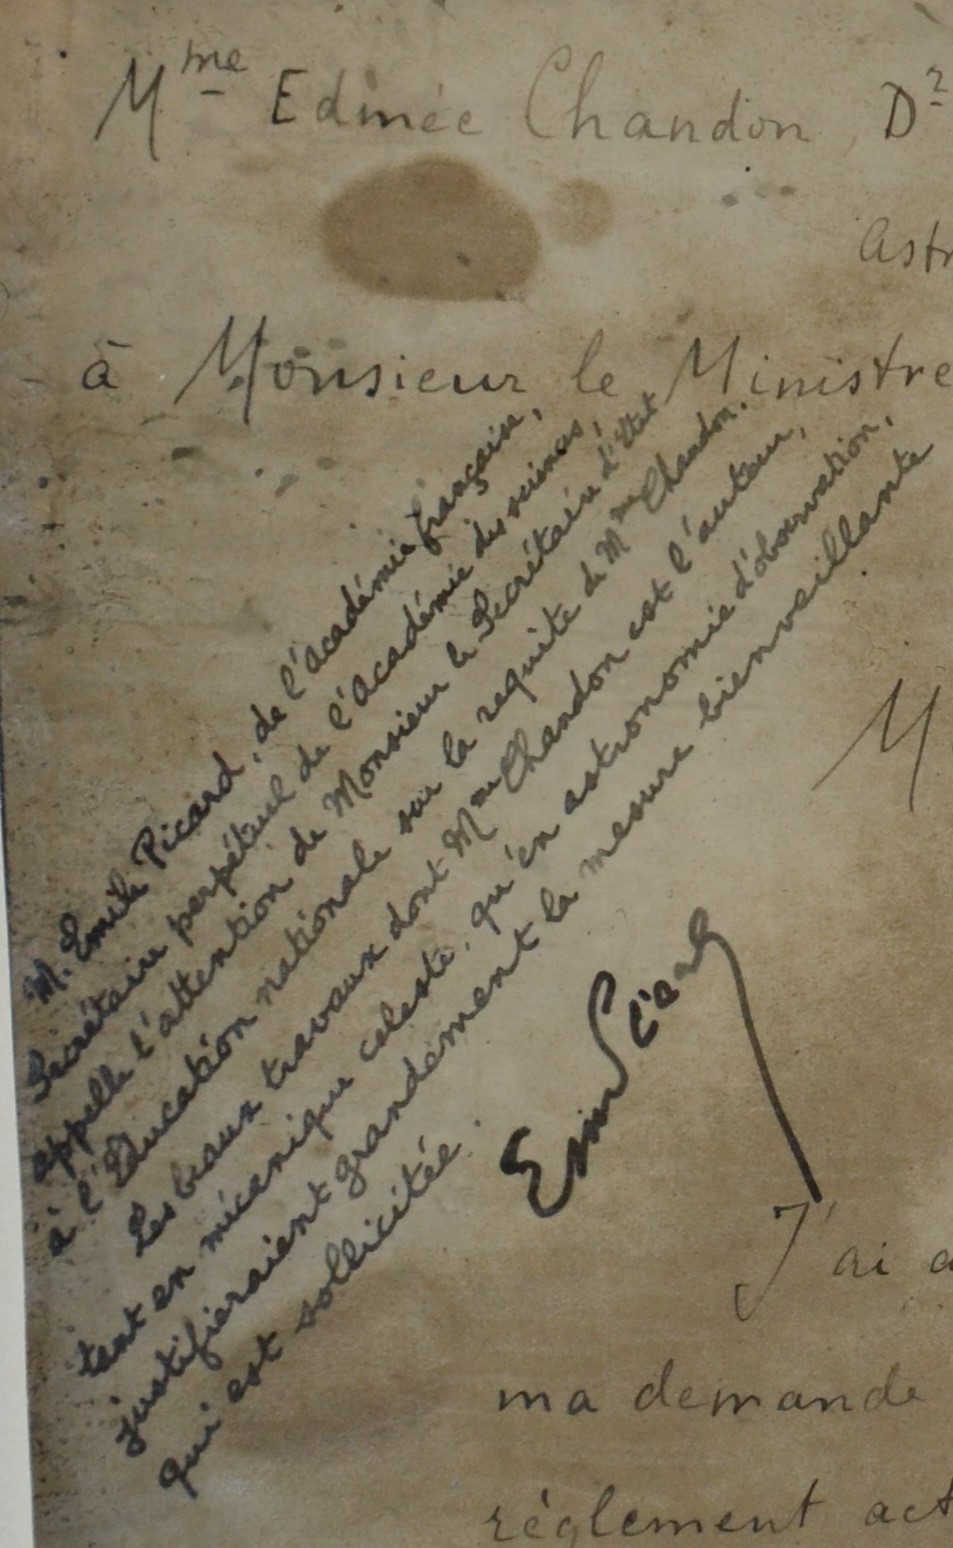 Mme Edmée Chandon, Dr
astr
à Monsieur le Ministre
M. Emile Picard, de l'académie française,
Secrétaire perpétuel de l'Académie des sciences,
appelle l'attention de Monsieur le Secrétaire d'Etat
à l'Education nationale sur la requête de Mme Chandon.
Les beaux travaux dont Mme Chandon est l'auteur,
tant en mécanique celeste, qu'en astronomie d'observation,
justifieraient grandement la mesure bienveillante
qui est sollicitée.
Emile Picard
M
J'ai a
ma demande
réglement act